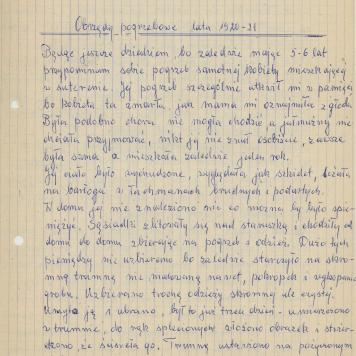 Obrzędy pogrzebowe lata 1920-21
Będąc jeszcze dzieckiem bo zaledwie mając 5-6 lat
przypominam sobie pogrzeb samotnej kobiety mieszkającej
w suterenie. Jej pogrzeb szczególnie utkwił mi w pamięci
bo kobieta ta zmarła, jak mama mi oznajmiła z głodu.
Była podobno chora nie mogła chodzić a jałmużny nie
chciała przyjmować, nikt jej nie znał osobiście, zawsze
była sama a mieszkała zaledwie jeden rok.
Jej ciało było wychudzone, wyglądała jak szkielet, leżała
na barłogu w łachmanach brudnych i podartych.
W domu jej nie znaleziono nic co można by było spie-
niężyć. Sąsiadki zlitowały się nad staruszką i chodziły od
domu do domu zbierając na pogrzeb i odzież. Dużo tych
pieniędzy nie uzbierano bo zaledwie starczyło na skro-
mną trumnę nie malowaną nawet, pokropek i wykopanie
grobu. Uzbierano trochę odzieży skromną ale czystą.
Umyto ją i ubrano, był to już trzeci dzień - umieszczono
w trumnie, do rąk splecionych włożono obrazek i stwier-
dzono że Trumnę ustawiono na pożyczonym